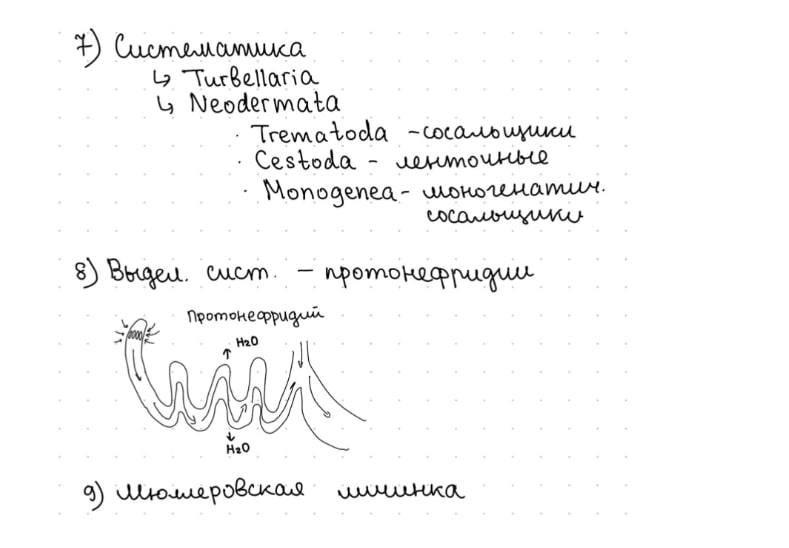 7) Систематика
↳ Turbellaria
↳ Neodermata
· Trematoda - сосальщики
· Cestoda - ленточные
· Monogenea - моногенатич.
сосальщики
8) Выдел. сист. - протонефридии
Протонефридий
H₂O
H₂O
9) Мюллеровская личинка